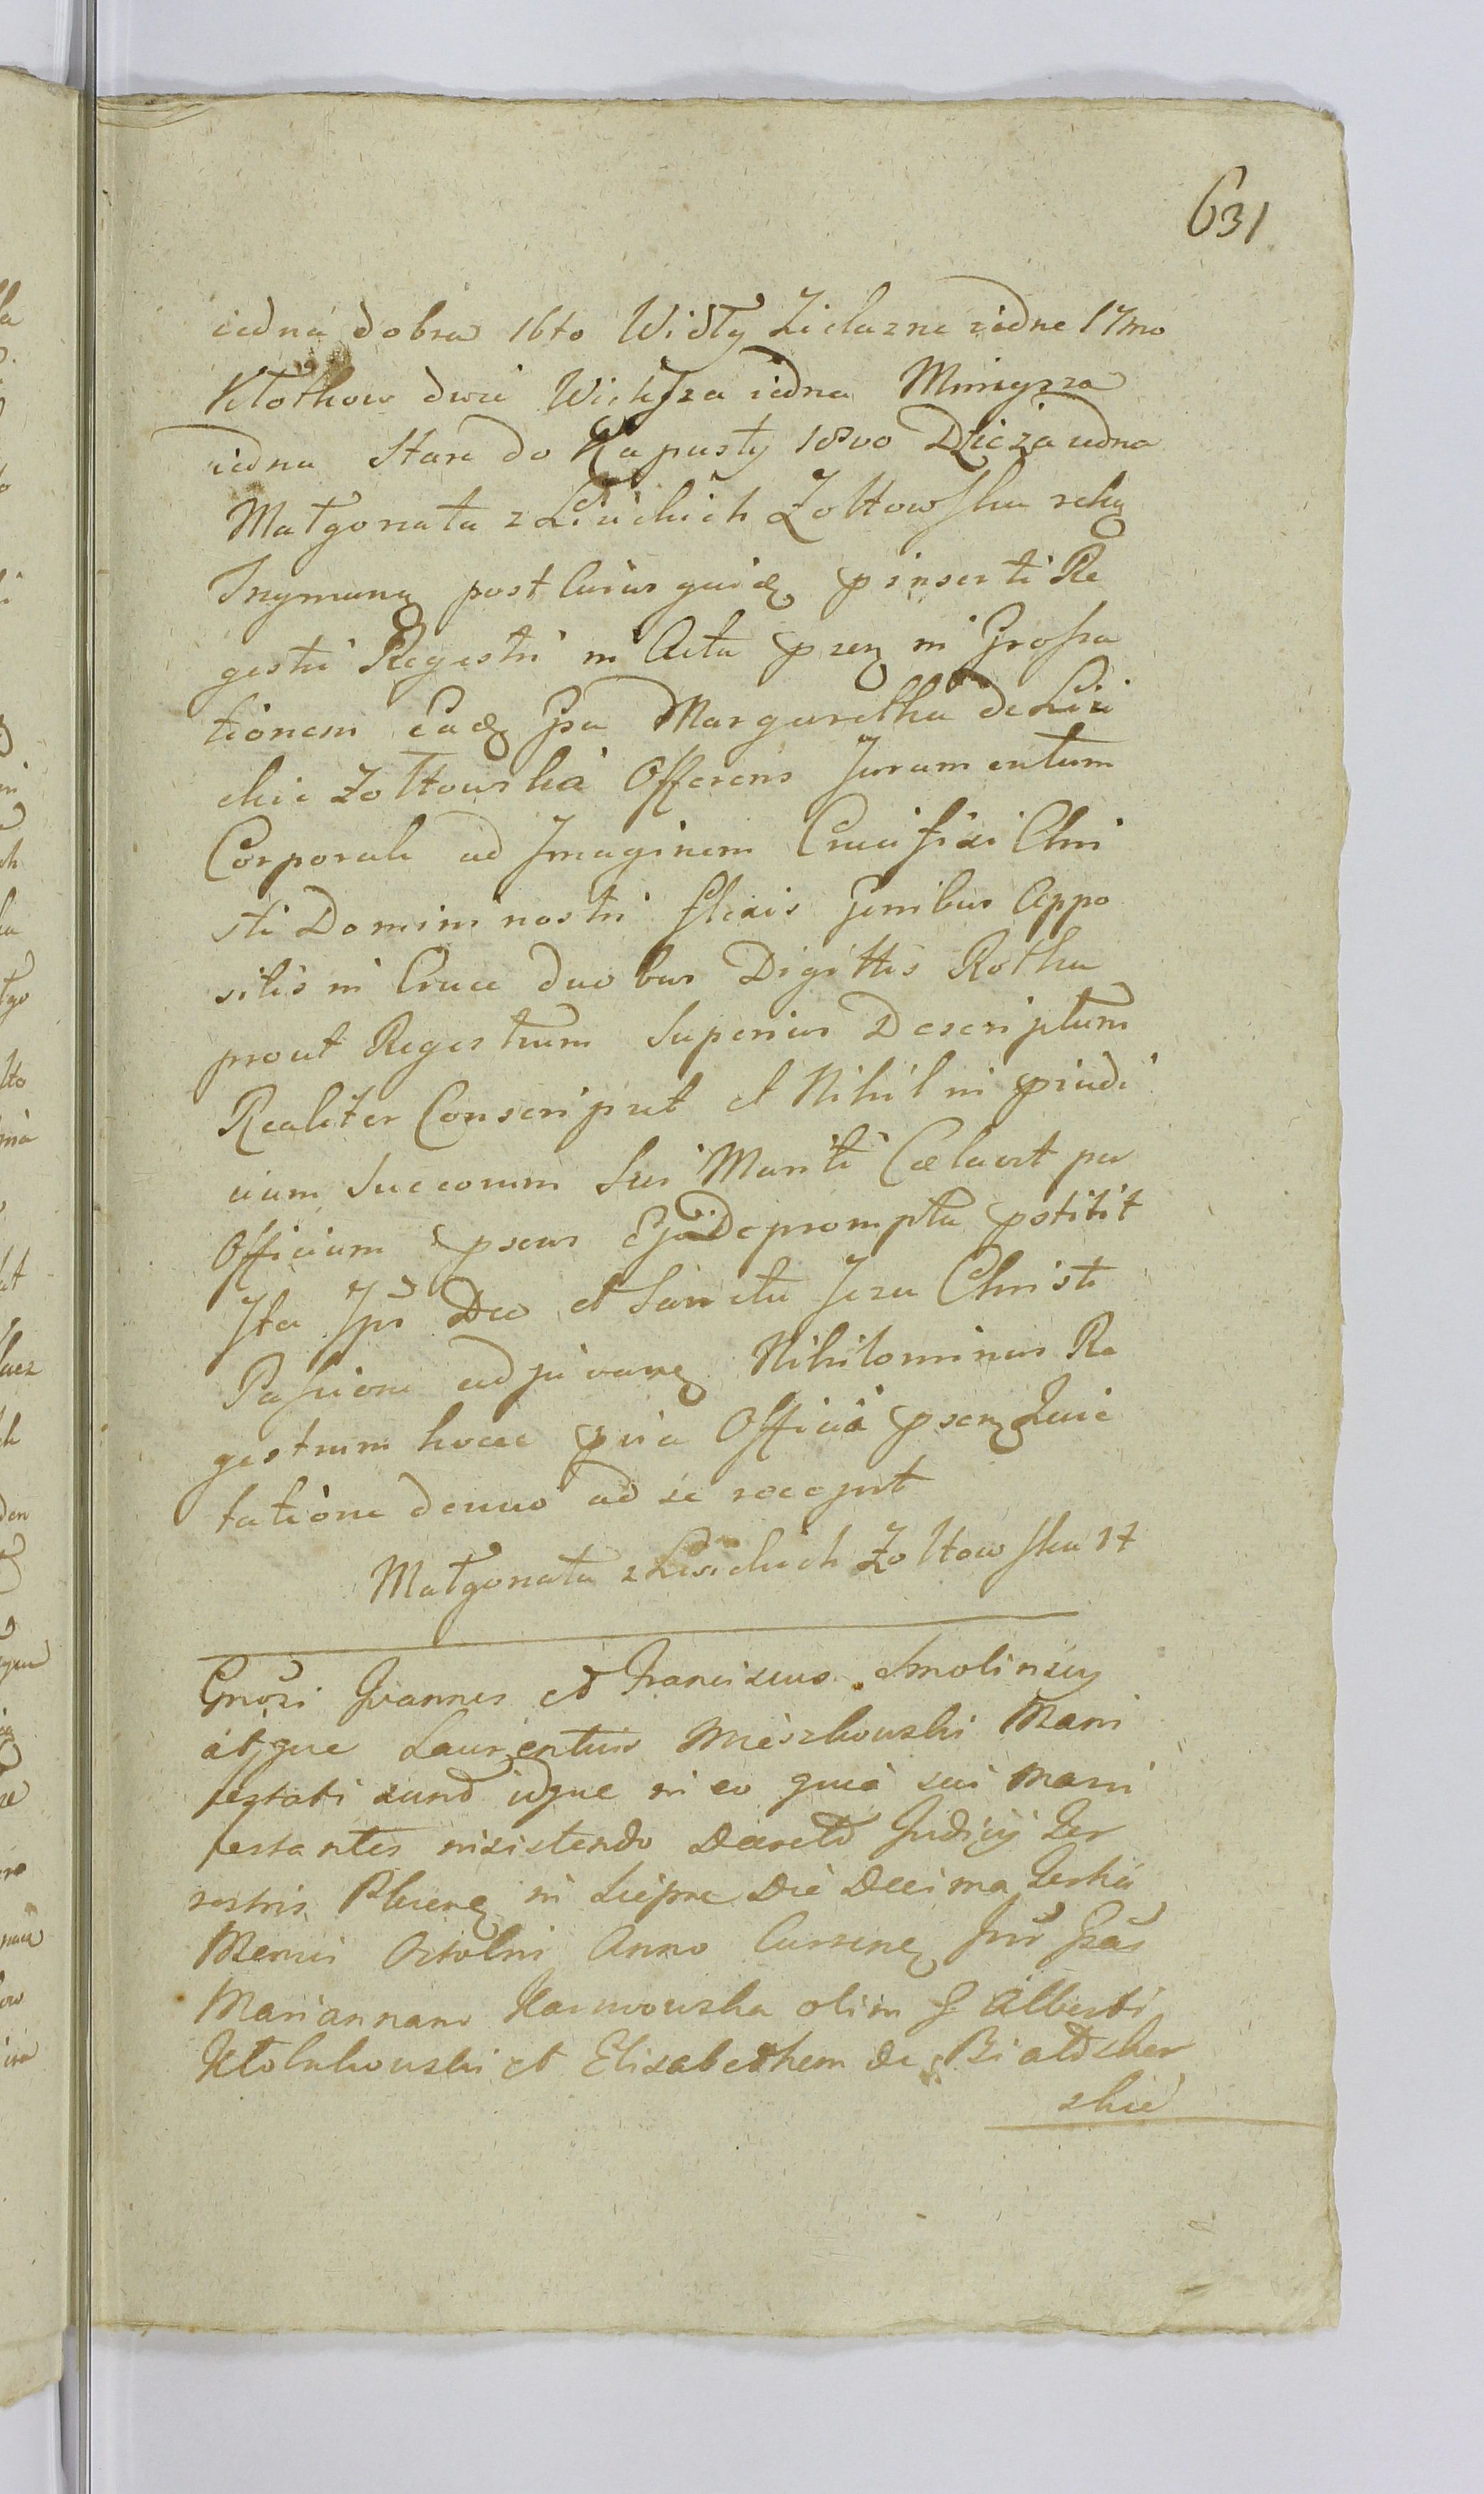 631
iedna dobra 16to Widły Zielazne iedne 17mo
Kłotkow dwie Wieksza iedna Mnieysza
iedna Stare do Kapusty 18vo Dzieza iedna
Małgorzata z Lisickich Zołtowska ręką
Trzymaną post Cuius quidę pinserti Re
gestri Regestri in Acta pseną in Grossa
tionem Eadę Gsa Margaretha de Lisi
ckie Zołtowska Offerens Juramentum
Corporale ad Imaginem Crucifixi Chri
sti Domini nostri flexis Genibus Appo
sitis in Cruce duobus Digittis Rotha
prout Regestrum Superius Descriptum
Realiter Conscripsit et Nihil in piudi
cium Succorum Sui Mariti Caelavit per
Officium psens Ejdepromptu pstitit
Ita Ipi Deo et Sancta Jezu Christi
Passione adjuvanę Nihilominus Re
gestrum hocce pvia Officii pseną Quie
tatione denuo ad se recepit
Małgorzata z Lisickich Zołtowska
Gnosi Joannes et Franciscus Smolinscy
atque Laurentius Mieszkowski Mani
festati sund idque in eo quia sui Mani
festantes insistendo Decreto Judicij Ter
restris Plocenę in Siepre Die Decima Tertia
Mensis Octobris Anno Currenę Inr Gsas
Mariannam Karwowska olim G Alberti
Kłobukowski et Elisabethem de Białosker
skie